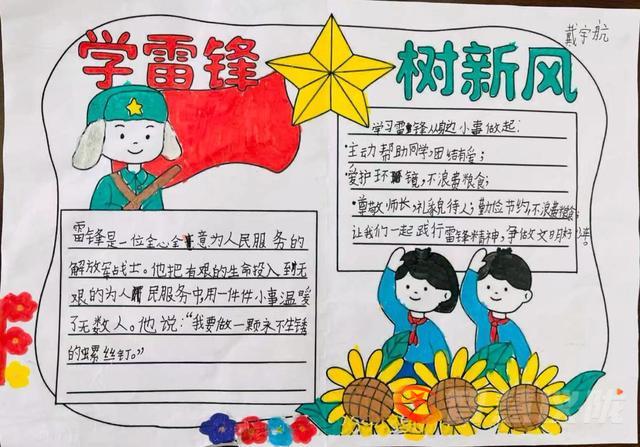 学雷锋
树新风
戴宇航
雷锋是一位全心全意为人民服务的
解放军战士。他把有艰的生命投入到无
艰的为人民服务中用一件件小事温暖
了无数人。他说：“我要做一颗永不生锈
的螺丝钉。”
学习雷锋从身边小事做起：
·主动帮助同学，团结有爱；
·爱护环境，不浪费粮食；
·尊敬师长，礼貌待人；勤俭节约，不浪费粮食
让我们一起践行雷锋精神，争做文明好